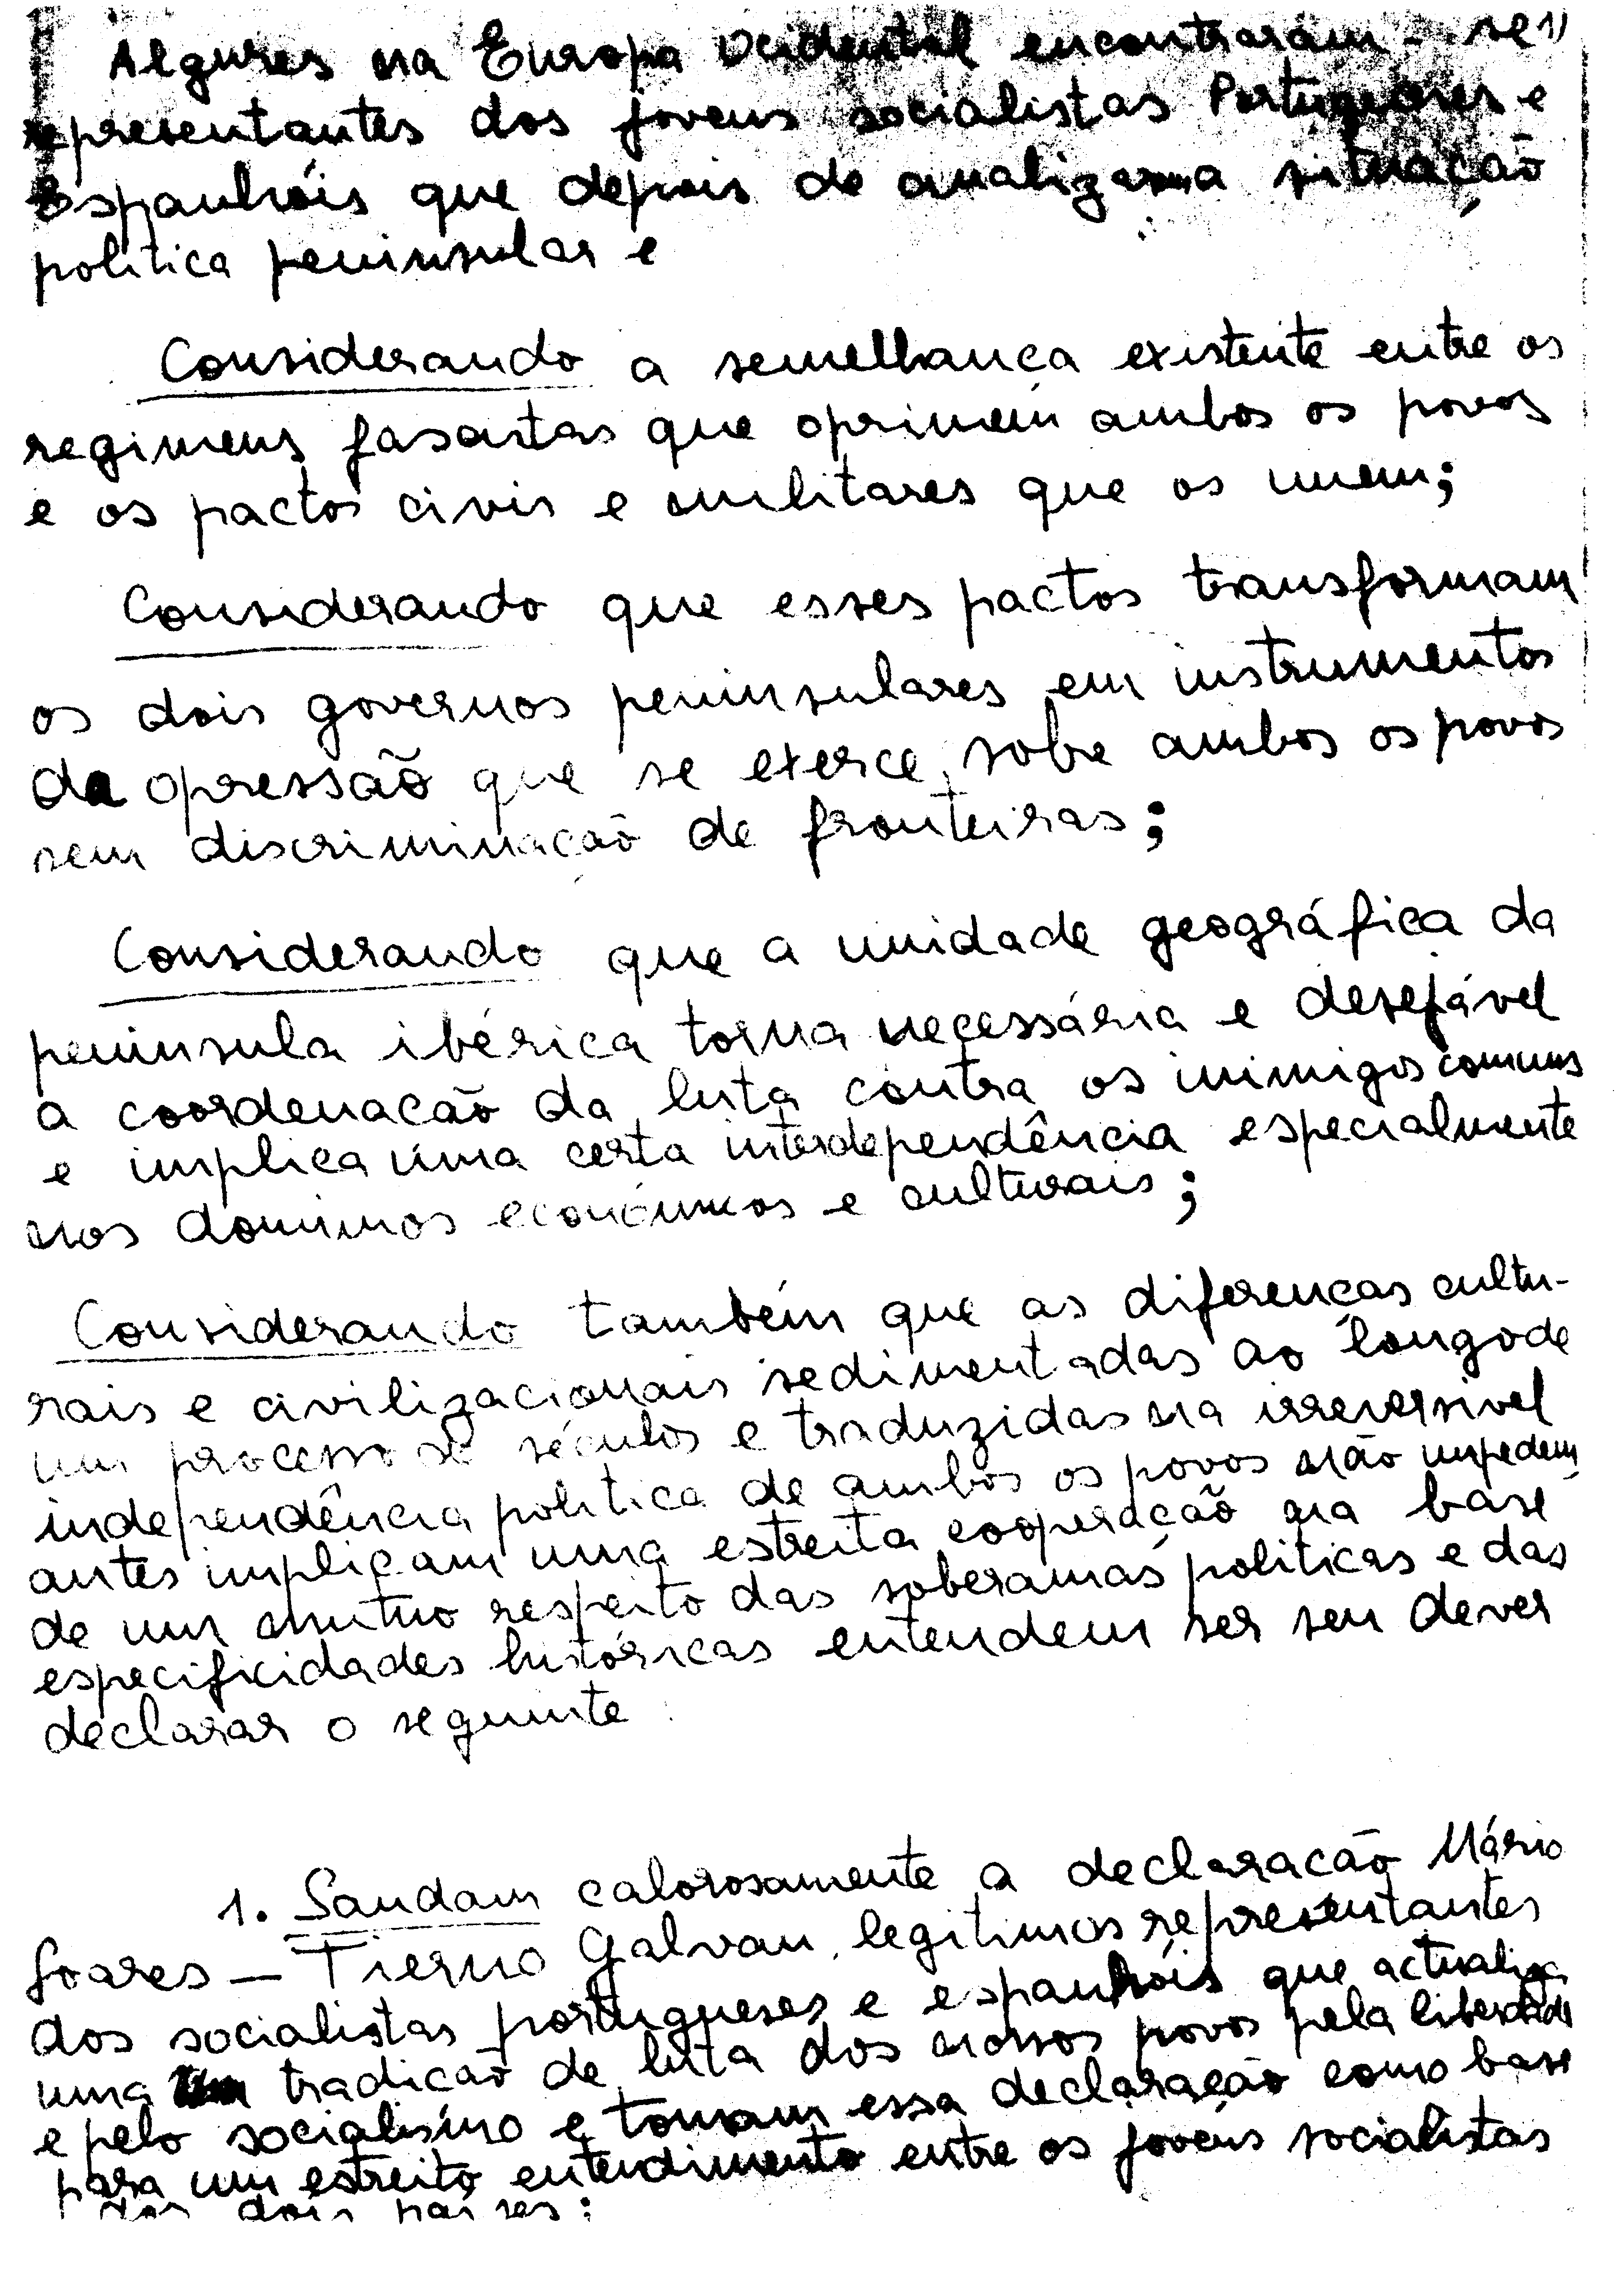 Algures na Europa Ocidental encontraram-se 1)
representantes dos jovens socialistas Portugueses e
Espanhóis que depois de analizarem a situação
politica peninsular e
Considerando a semelhança existente entre os
regimens fascistas que oprimem ambos os povos
e os pactos civis e militares que os unem;
Considerando que esses pactos transformam
os dois governos peninsulares em instrumentos
da opressão que se exerce sobre ambos os povos
sem discriminação de fronteiras;
Considerando que a unidade geográfica da
peninsula ibérica torna necessária e desejável
a coordenação da luta contra os inimigos comuns
e implica uma certa interdependência especialmente
nos dominios económicos e culturais;
Considerando também que as diferenças cultu-
rais e civilizacionais sedimentadas ao longo de
um processo de séculos e traduzidas na irreversivel
independência politica de ambos os povos não impedem,
antes implicam uma estreita cooperação na base
de um mutuo respeito das soberanias politicas e das
especificidades históricas entendem ser seu dever
declarar o seguinte
1. Saudam calorosamente a declaração Mário
Soares - Tierno Galvan, legitimos representantes
dos socialistas portugueses e espanhóis que actualiza
uma tradição de luta dos nossos povos pela liberdade
e pelo socialismo e tomam essa declaração como base
para um estreito entendimento entre os jovens socialistas
dos dois paises: